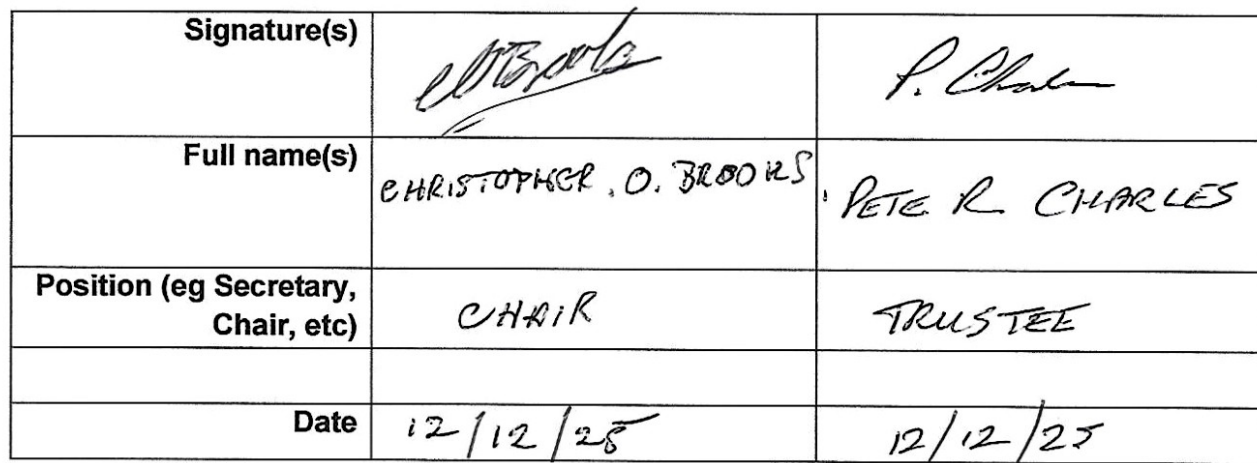 Signature(s)
Full name(s) CHRISTOPHER. O. BROOKS PETE R CHARLES
Position (eg Secretary,
Chair, etc) CHAIR TRUSTEE
Date 12/12/25 12/12/25